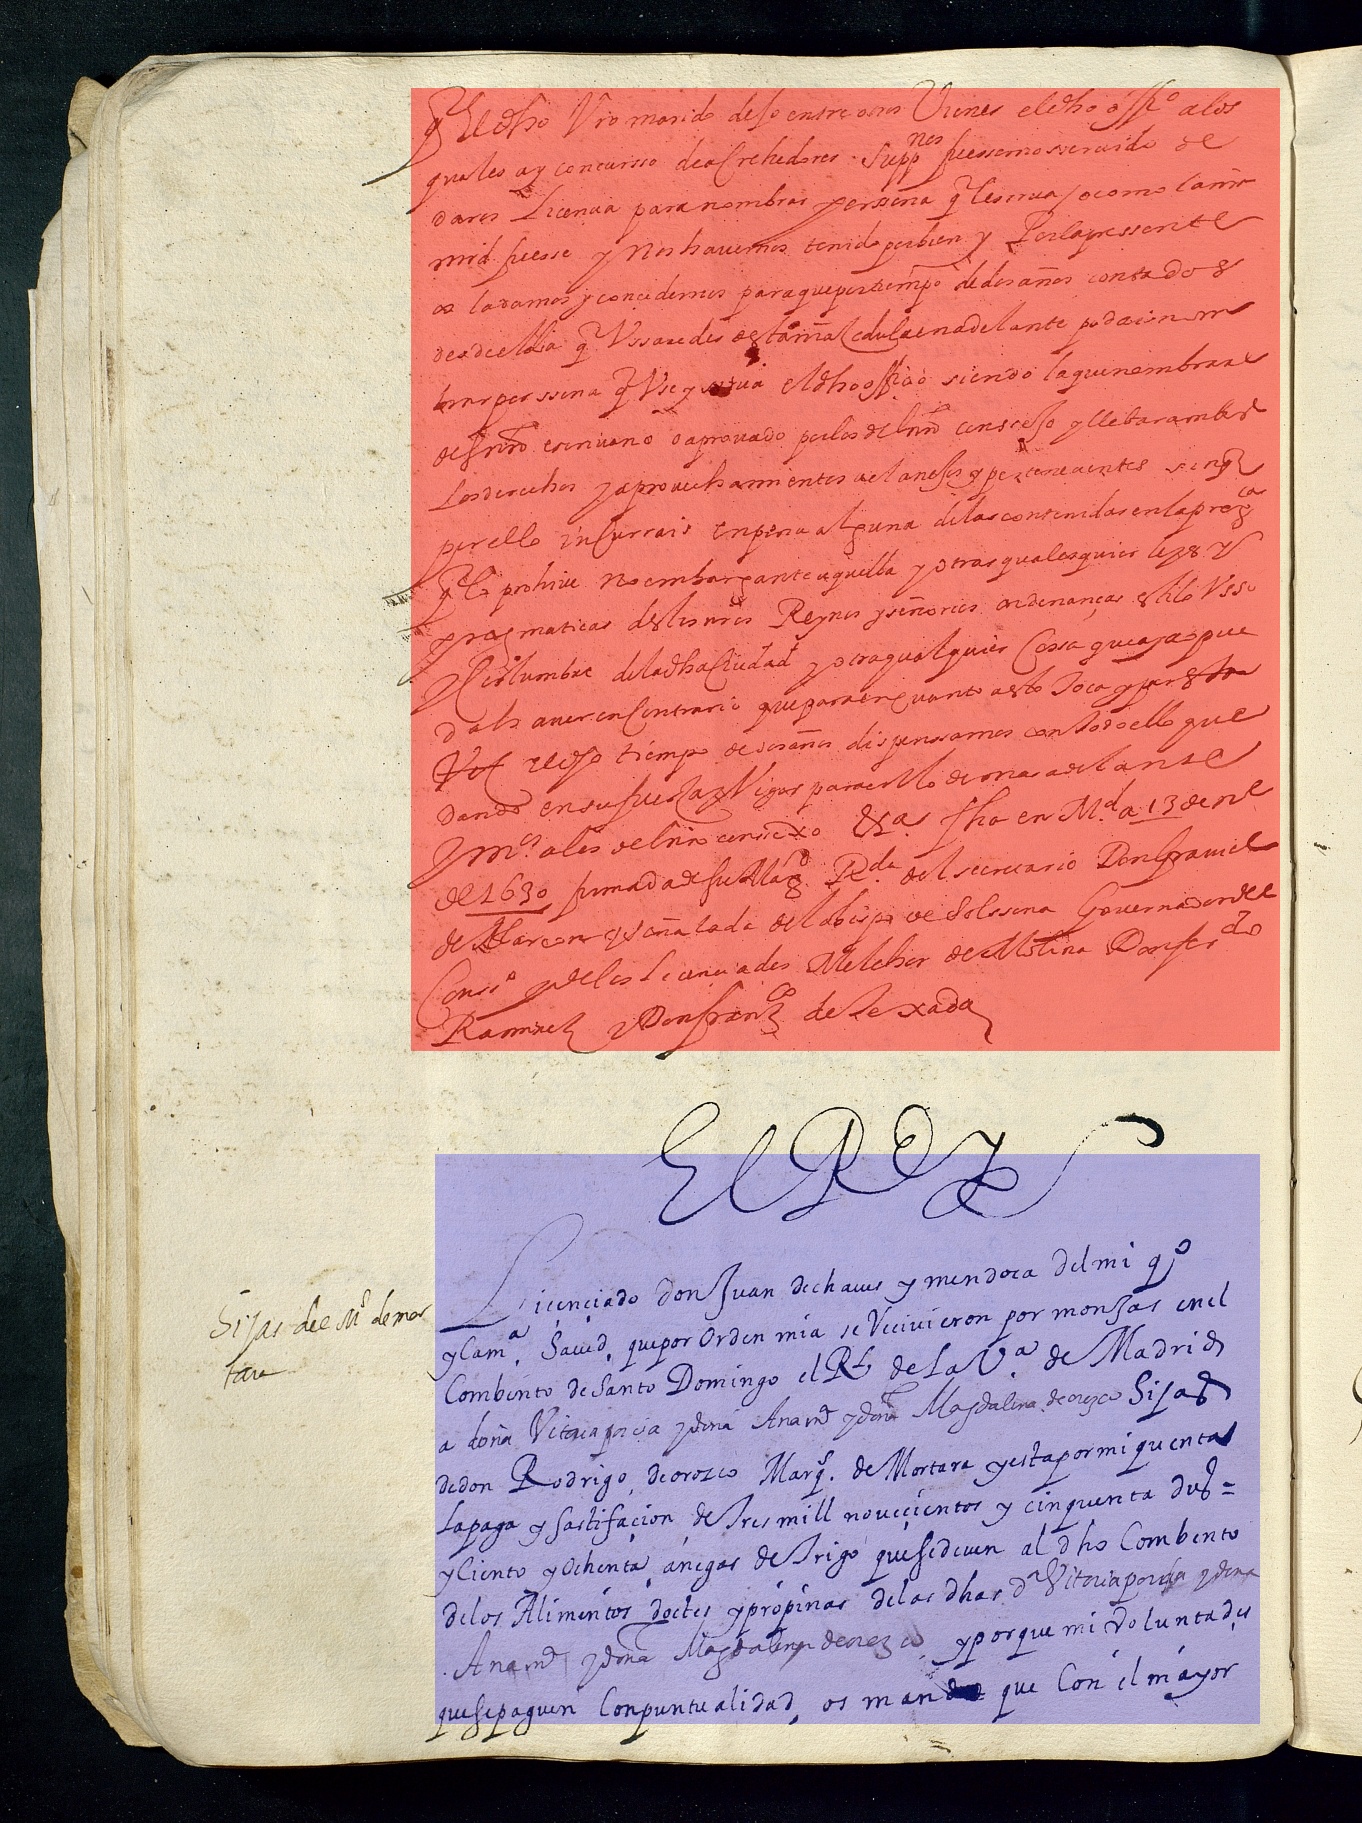 q El dho Vro marido dejo entre otros Vienes el dho offº a los
quales ay concursso de aCrehedores Suppnos fuessemos seruido de
daros Licencia para nombrar perssona q le sirua / o como la nra
mrd fuesse y Nos hauemos tenido por bien y Por la pressente
os la damos y concedemos para que por tiempo de dos años contados
desde el dia q Vssaredes desta mi Cedula en adelante podais nom
brar perssona q Vse y sirua el dho officio siendo la que nombrare
des nro escriuano o aprouado por los del nro conssejo y llebar ambos
los derechos y aprouechamientos a el anejos y pertenecientes sin q
por ello inCurrais en pena alguna de las contenidas en la pregca
q lo prohiue no embargante aquella y otras qualesquier leyes y
pragmaticas destos nros Reynos y señorios ordenanças estilo Vsso
y Costumbre de la dha Ciudad y otra qualquier Cossa que aya o pue
da aver en Contrario que para en quanto a esto Toca y por esta
Vez el dho tiempo de dos años dispenssamos con todo ello que
dando en su fuerza y Vigor para en lo de mas adelante
y mos a los del nro conssexo &a fha en Md a 13 de ne
de 1630 firmada de su Magd Rda del secretario Don franco
de Alarcon y señalada del obispo de Solssona Gouernador del
Conso y de los Licenciados Melchor de Molina Don ferdo
Ramirez y Don franco de Texada
El REy
Licenciado don Juan de chaues y mendoca del mi qo
y Cama Saued, que por orden mia se Reciuieron por monJas en el
Combento de Santo Domingo el Rl de la Va de Madrid
a doña Vitoria porcia y doña Ana mr y doña Magdalena de orozco hijas
de don Rodrigo de orozco Marqs. de Mortara y esta por mi quenta
la paga y sastifacion de Tres mill nouecientos y cinquenta dus =
y Ciento y ochenta anegas de Trigo que se deuen al dho Combento
de los Alimentos doctes y propinas de las dhas da Vitoria porcia y doña
Ana mr y doña Magdalena de orozco y porque mi voluntad es
que se paguen con puntualidad, os mando que Con el mayor
hijas del Ms de mor
tara